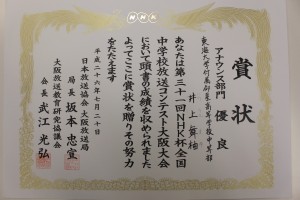 NHK
賞状
アナウンス部門 優良
東海大学付属仰星高等学校中等部
井上舞紬
あなたは第三十一回NHK杯全国
中学校放送コンテスト大阪大会
において頭書の成績を収められました
よってここに賞状を贈りその努力
をたたえます
平成二十六年七月二十日
日本放送協会 大阪放送局
局長 坂本忠宣
大阪放送教育研究協議会
会長 武江光弘